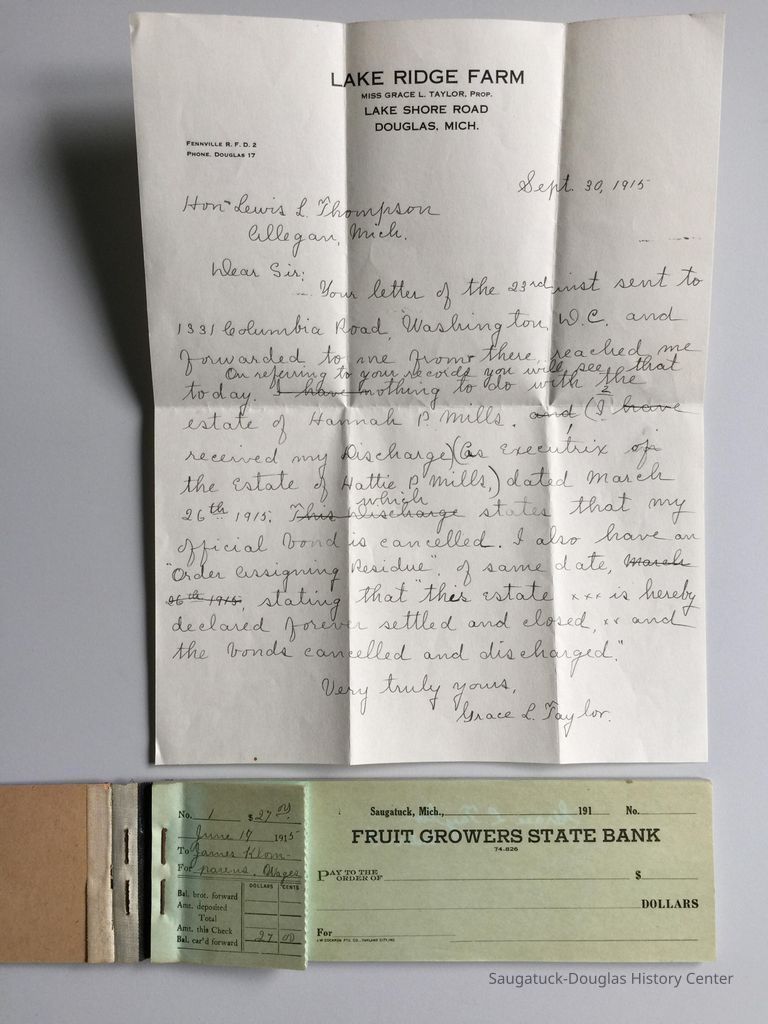 LAKE RIDGE FARM
MISS GRACE L. TAYLOR, PROP.
LAKE SHORE ROAD
DOUGLAS, MICH.
FENNVILLE R. F. D. 2
PHONE, DOUGLAS 17
Sept. 30, 1915
Hon Lewis L. Thompson
Allegan, Mich.
Dear Sir:
Your letter of the 23rd inst sent to
1331 Columbia Road, Washington, D.C. and
forwarded to me from there, reached me
On referring to your records you will see that
today. I have nothing to do with the
estate of Hannah P. Mills. and (I have
received my Discharge) (As Executrix of
the Estate of Hattie P. Mills,) dated March
which
26th 1915. This Discharge states that my
official bond is cancelled. I also have an
"Order Assigning Residue", of same date, March
26th 1915, stating that "this Estate xxx is hereby
declared forever settled and closed, xx and
the bonds cancelled and discharged."
Very truly yours,
Grace L. Taylor.
No. 1 $27
June 1915
To James Klom-
For parens. Wages
DOLLARS CENTS
Bal. brot. forward
Amt. deposited
Total
Amt. this Check
Bal. car'd forward 27 00
Saugatuck, Mich., 191 No.
FRUIT GROWERS STATE BANK
74-826
PAY TO THE
ORDER OF $
DOLLARS
For
Saugatuck-Douglas History Center